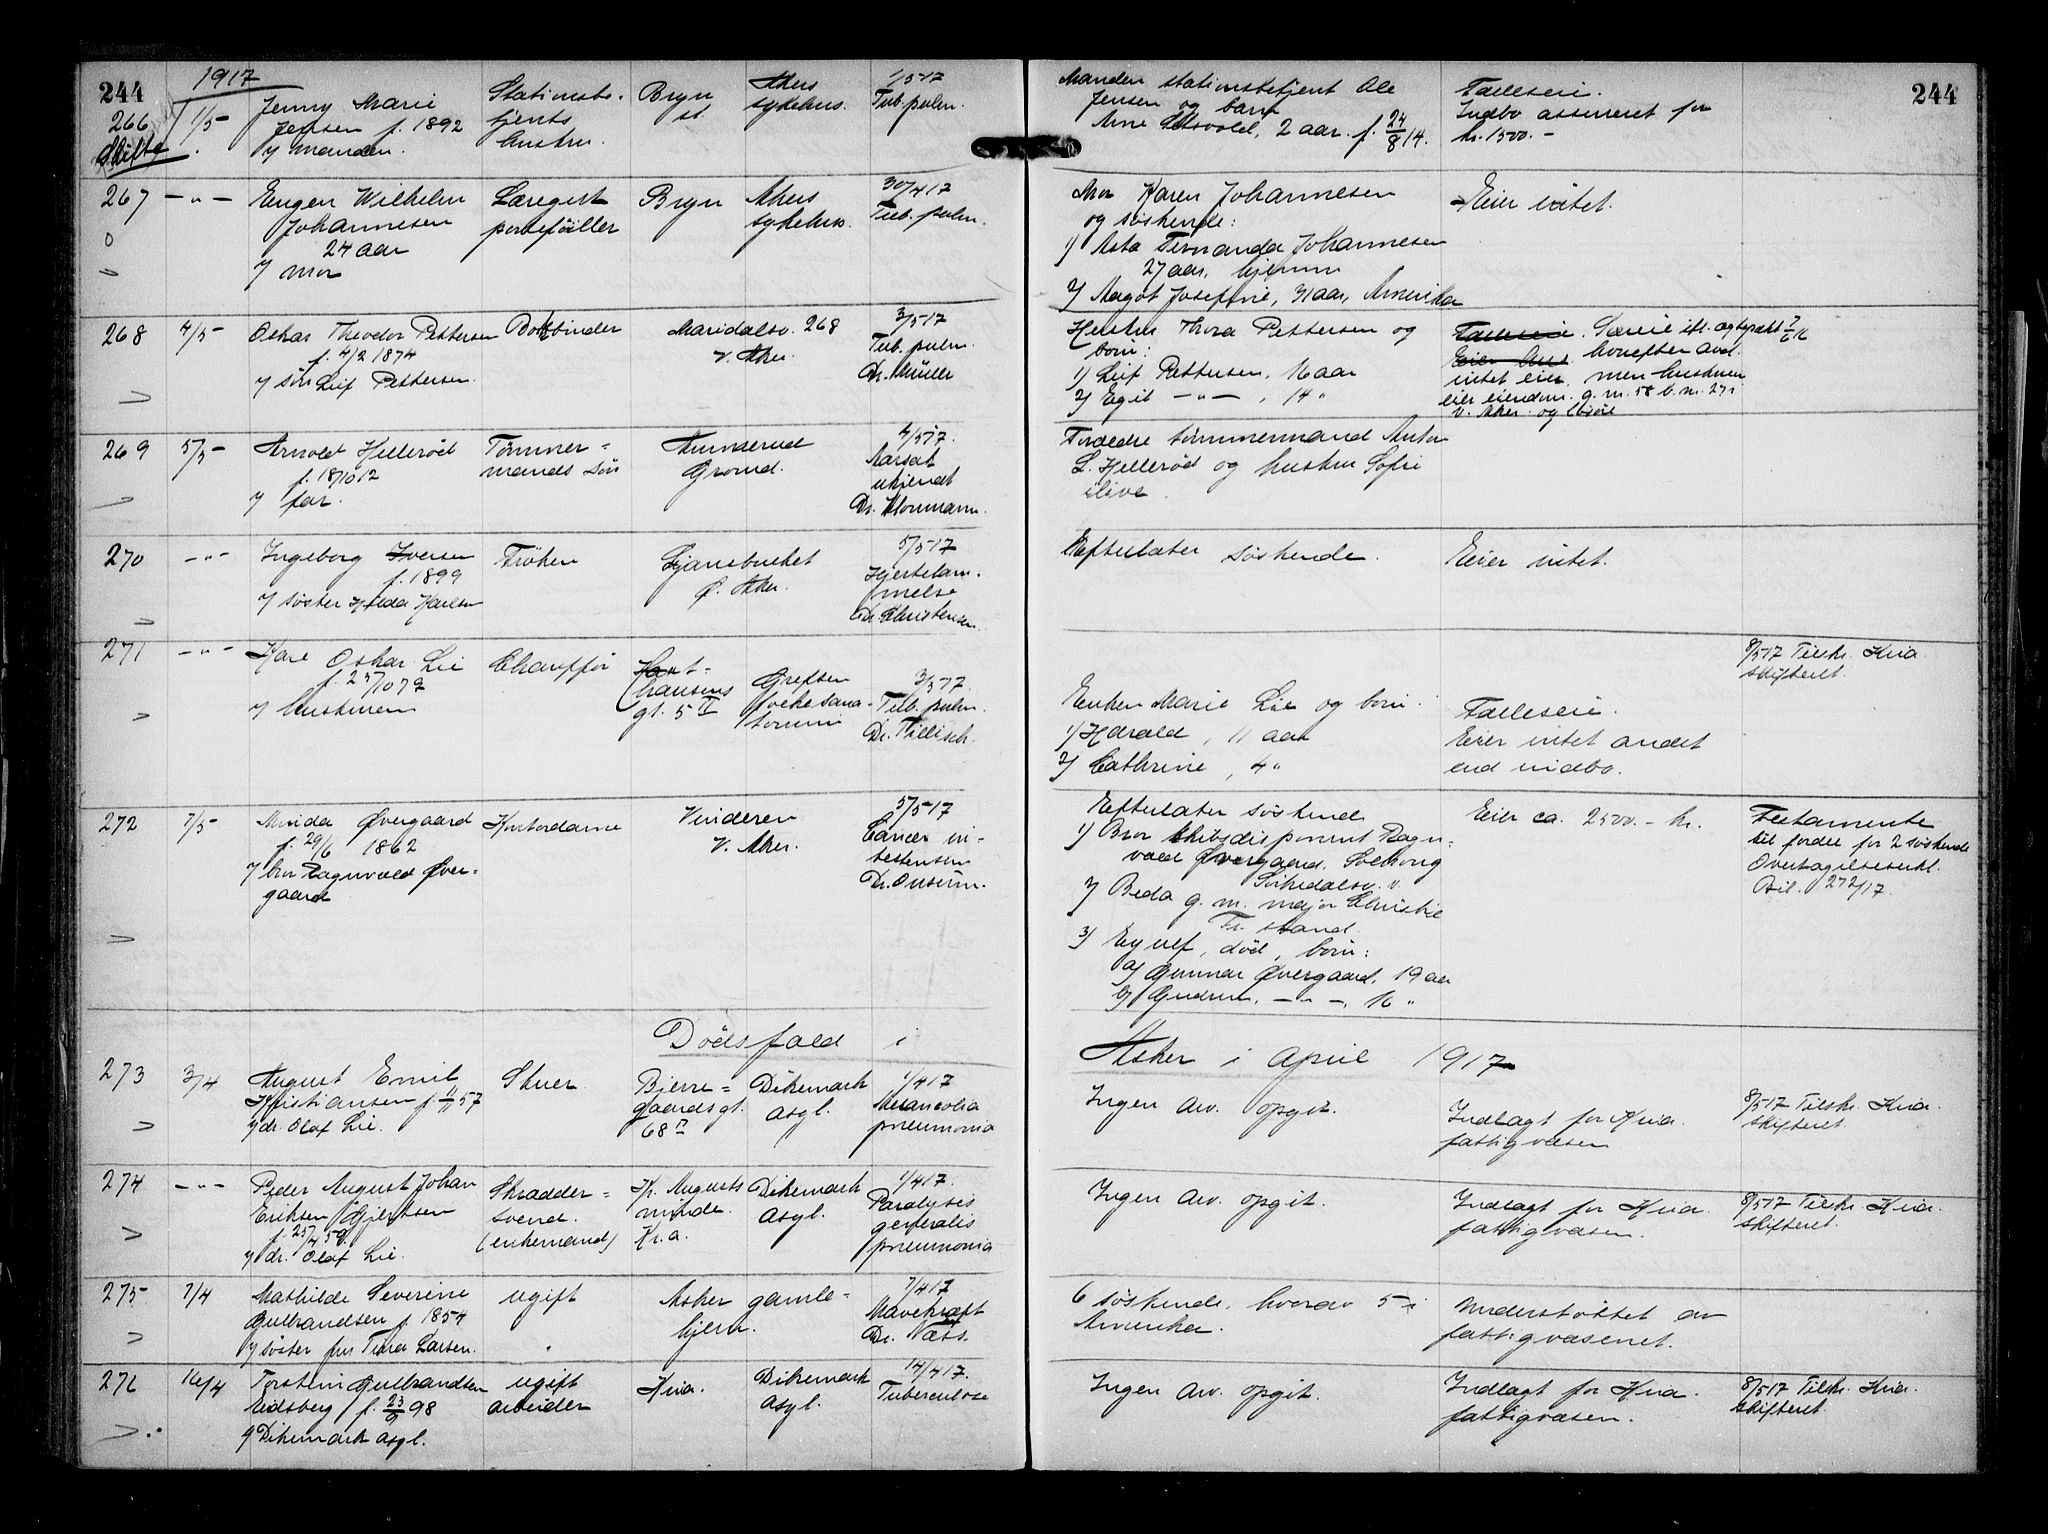 244
1917
266 1/5 Jenny Marie Jensen f. 1892
Skifte
v/ manden.
Stationsbe-
tjents
hustru
Bryn
st.
Akers
sykehus.
1/5 17
Tub. pulm.
Manden stationsbetjent Ole
Jensen og barn
Arne 2 aar. f. 24/8 14.
Fælleseie.
Indbo assureret for
kr. 1500.-
244
267 -"- Eugen Wilhelm
Johannesen
24 aar
v/ mor
Læregut
portefôiller
Bryn
Akers
sykehus.
30/4 17
Tub. pulm.
Mor Karen Johannesen
og søskende:
1) Asta Fernanda Johannesen
27 aar, hjemme
2) Magot Josefine, 31 aar, Amerika
Eier intet.
268 4/5 Oskar Theodor Pettersen
f. 4/2 1874
v/ søn Leif Pettersen.
Bokbinder
Maridalsv. 268
V. Aker.
3/5 17
Tub. pulm.
Dr. Müller
Hustru Thora Pettersen og
børn:
1) Leif Pettersen, 16 aar
2) Egil -"-, 14 "
Fælleseie. Særeie ifl. ægtepakt 7/6 16
hvorefter avd.
intet eier, men hustruen
eier eiendom. g. nr. 58 b. nr. 271
v. Aker og
269 5/5 Arnold Hellerød
f. 18/10 12
v/ far.
Tømmer=
mands søn
Amrud
Grorud.
4/5 17.
Aarsak
ukjendt
Dr. Klonmann.
Forældre tømmermand Anton
L. Hellerød og hustru Sofie
ilive.
270 -"- Ingeborg Iversen
f. 1899
v/ søster Hilda Karlsen
Frøken
Ljansbruket
Ø. Aker.
5/5 17
Hjertelam-
melse
Dr. Christensen.
Efterlater søskende.
Eier intet.
271 -"- Kare Oskar Lie
f. 25/10 79
v/ hustruen
Chauffør
Hant-
hausens
gt. 5 IV
Grefsen
folkesana-
torium
3/5 17.
Tub. pulm.
Dr. Tillisch.
Enken Marie Lie og børn:
1) Harald, 11 aar
2) Cathrine, 4 "
Fælleseie.
Eier intet andet
end indbo.
8/5 17 Tilskr. Kria.
skifteret.
272 7/5 Minda Øvergaard
f. 29/6 1862
v/ bror Ragnvald Øver=
gaard
Kontordame
Vinderen
V. Aker.
5/5 17
Cancer in-
testensin
Dr. Onsum.
Efterlater søskende
1) Bror skibsdisponent Ragn=
vald Øvergaard, Solhaug
Sørkedalsv. v.
2) Beda g. m. major Christie
Tr. stand.
3) Eyulf, død, børn:
a) Gunnar Øvergaard, 19 aar
b) Gudrun, -"-, 16 "
Eier ca. 2500.- kr.
Testamente
til fordel for 2 søskende
Overtagelseserkl.
Bil. 272/17.
Dødsfald i
Asker i april 1917
273 3/4 August Emil
Kristiansen f. 11/11 57
v/ dr. Olaf Lie.
Skuer.
Bjerre=
gaardsgt.
68 II
Dikemark
asyl.
1/4 17
Melancolia
pneumonia
Ingen arv. opgit.
Indlagt for Kria.
fattigvæsen
8/5 17 Tilskr. Kria.
skifteret.
274 -"- Peder August Johan
Eriksen Gjertsen
f. 25/4 59.
v/ dr. Olaf Lie.
Skrædder=
svend.
(enkemand)
Kr. Augusts
minde.
Kr.a.
Dikemark
asyl.
1/4 17.
Paralysis
generalis
pneumonia
Ingen arv. opgit.
Indlagt for Kria.
fattigvæsen.
8/5 17 Tilskr. Kria.
skifteret.
275 7/4 Mathilde Severine
Gulbrandsen f. 1854
v/ søster fru Thea Larsen.
ugift
Asker gamle-
hjem.
7/4 17
Mavekræft
Dr. Næss.
6 søskende, hvorav 5 i
Amerika.
Understøttet av
fattigvæsenet.
276 16/4 Torstein Gulbrandsen
Eidsberg f. 23/9 98
v/ Dikemark asyl.
ugift
arbeider
Kria.
Dikemark
asyl.
14/4 17.
Tuberculose
Ingen arv. opgit.
Indlagt for Kria.
fattigvæsen.
8/5 17 Tilskr. Kria.
skifteret.